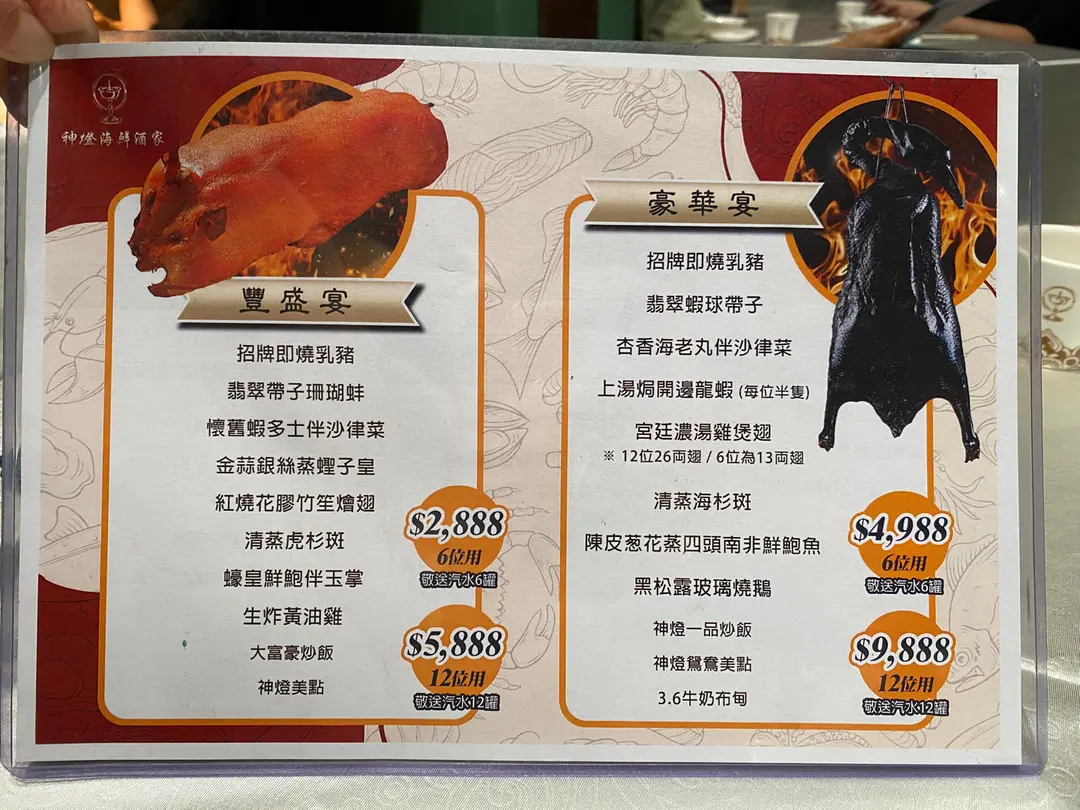 神燈海鮮酒家
豐盛宴
招牌即燒乳豬
翡翠帶子珊瑚蚌
懷舊蝦多士伴沙律菜
金蒜銀絲蒸蟶子皇
紅燒花膠竹笙燴翅
清蒸虎杉斑
蠔皇鮮鮑伴玉掌
生炸黃油雞
大富豪炒飯
神燈美點
$2,888
6位用
敬送汽水6罐
$5,888
12位用
敬送汽水12罐
豪華宴
招牌即燒乳豬
翡翠蝦球帶子
杏香海老丸伴沙律菜
上湯焗開邊龍蝦 (每位半隻)
宮廷濃湯雞煲翅
※ 12位26両翅 / 6位為13両翅
清蒸海杉斑
陳皮葱花蒸四頭南非鮮鮑魚
黑松露玻璃燒鵝
神燈一品炒飯
神燈鴛鴦美點
3.6牛奶布甸
$4,988
6位用
敬送汽水6罐
$9,888
12位用
敬送汽水12罐